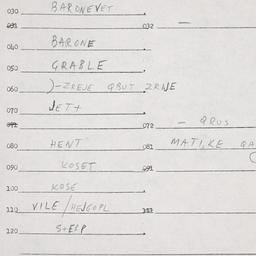 030 BARONEVET
031 032 —
040 BARONE
050 GRABLE
060 )-ZREJE QBUT ZRNE
070 JET+
071 072 - QRUS
080 HENT 081 MATI,KE
090 KOSET 091
100 KOSE
110 VILE/HEJGOPL
120 S+EFP